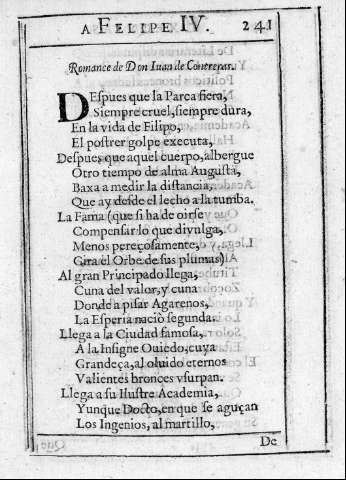 A FELIPE IV. 241
Romance de Don Iuan de Contreras.
DEspues que la Parca fiera,
Siempre cruel, siempre dura,
En la vida de Filipo,
El postrer golpe executa,
Despues que aquel cuerpo, albergue
Otro tiempo de alma Augusta,
Baxa a medir la distancia,
Que ay desde el lecho a la tumba.
La Fama (que si ha de oirse
Compensar lo que divulga,
Menos pereçosamente,
Gira el Orbe de sus plumas)
Al gran Principado llega,
Cuna del valor, y cuna
Donde a pisar Agarenos,
La Esperia naciò segunda.
Llega a la Ciudad famosa,
A la Insigne Ouiedo, cuya
Grandeça, al oluido eternos
Valientes bronces vsurpan.
Llega a su Ilustre Academia,
Yunque Docto, en que se aguçan
Los Ingenios, al martillo,
De